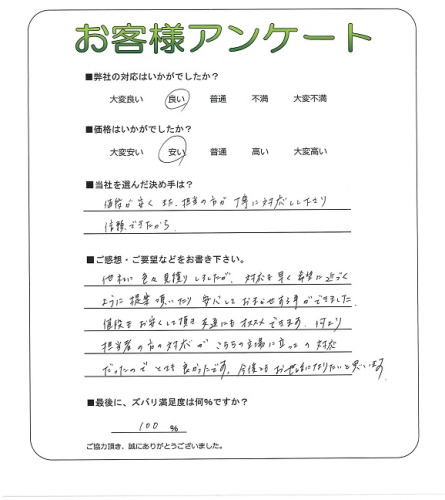 お客様アンケート
■弊社の対応はいかがでしたか？
大変良い 良い 普通 不満 大変不満
■価格はいかがでしたか？
大変安い 安い 普通 高い 大変高い
■当社を選んだ決め手は？
値段が安く また、担当の方が丁寧に対応して下さり
信頼できたから。
■ご感想・ご要望などをお書き下さい。
他社に色々見積りしましたが、対応も早く希望に近づく
ように提案頂いたり 安心しておまかせする事ができました。
値段もお安くして頂き 友達にもオススメできます。何より
担当者の方の対応が こちらの立場に立った対応
だったので とても良かったです。今後ともお世話になりたいと思います。
■最後に、ズバリ満足度は何%ですか？
100 %
ご協力頂き、誠にありがとうございました。